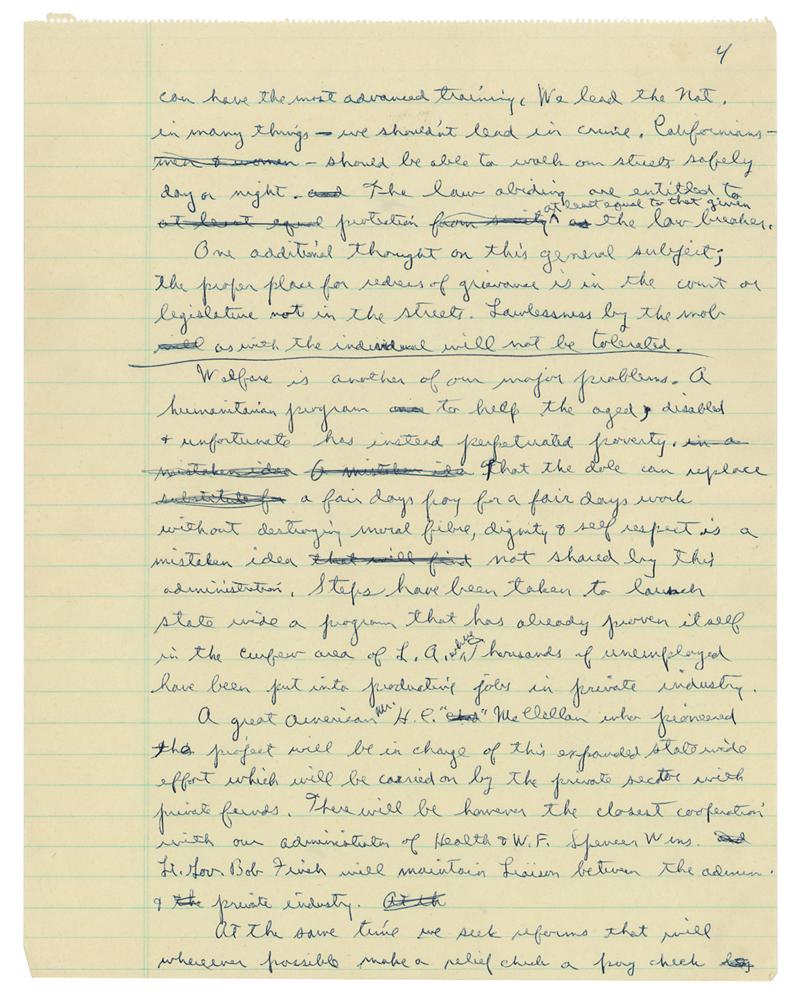 4
can have the most advanced training. We lead the Nat.
in many things – we shouldn't lead in crime. Californians –
men & women – should be able to walk our streets safely
day or night. and The law abiding are entitled to
at least equal to that given
at least equal protection from society as the law breaker.
One additional thought on this general subject;
the proper place for redress of grievance is in the court or
legislature not in the streets. Lawlessness by the mob
will as with the individual will not be tolerated.
Welfare is another of our major problems. A
humanitarian program to help the aged, disabled
& unfortunate has instead perpetuated poverty. in a
mistaken idea A mistaken idea That the dole can replace
substitute for a fair days pay for a fair days work
without destroying moral fibre, dignity & self respect is a
mistaken idea that will find not shared by this
administration. Steps have been taken to launch
state wide a program that has already proven itself
in the curfew area of L.A. where Thousands of unemployed
have been put into productive jobs in private industry.
A great American Mr. H.C. "Chad" McClellan who pioneered
the project will be in charge of this expanded statewide
effort which will be carried on by the private sector with
private funds. There will be however the closest cooperation
with our administrator of Health & W.F. Spencer Wms. and
Lt. Gov. Bob Finch will maintain liaison between the admin.
& the private industry. At th
At the same time we seek reforms that will
wherever possible make a relief check a pay check